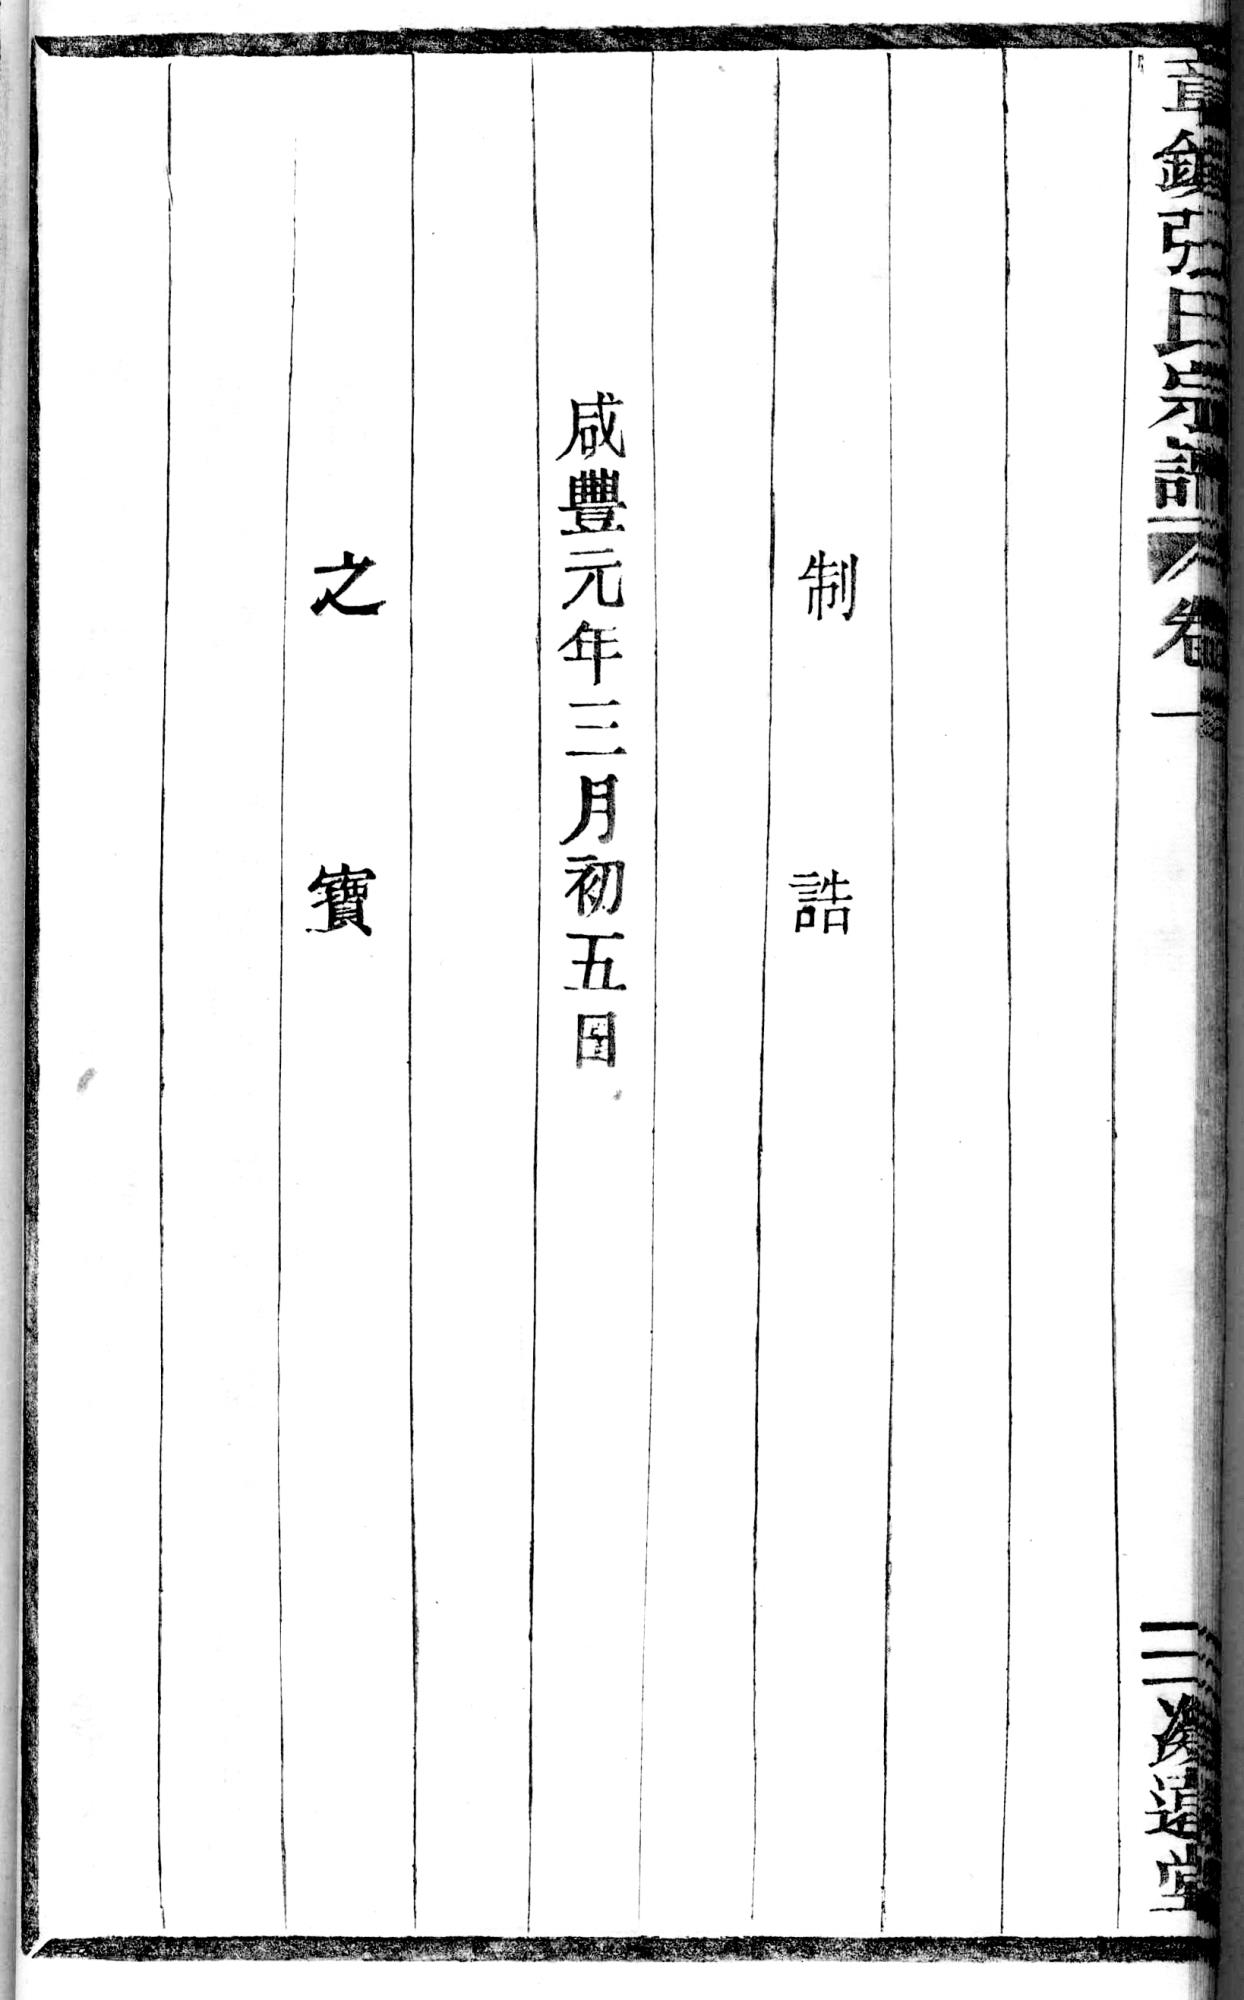 章鎮張氏宗譜 卷一 三 堂
制誥
咸豐元年三月初五日
之寶